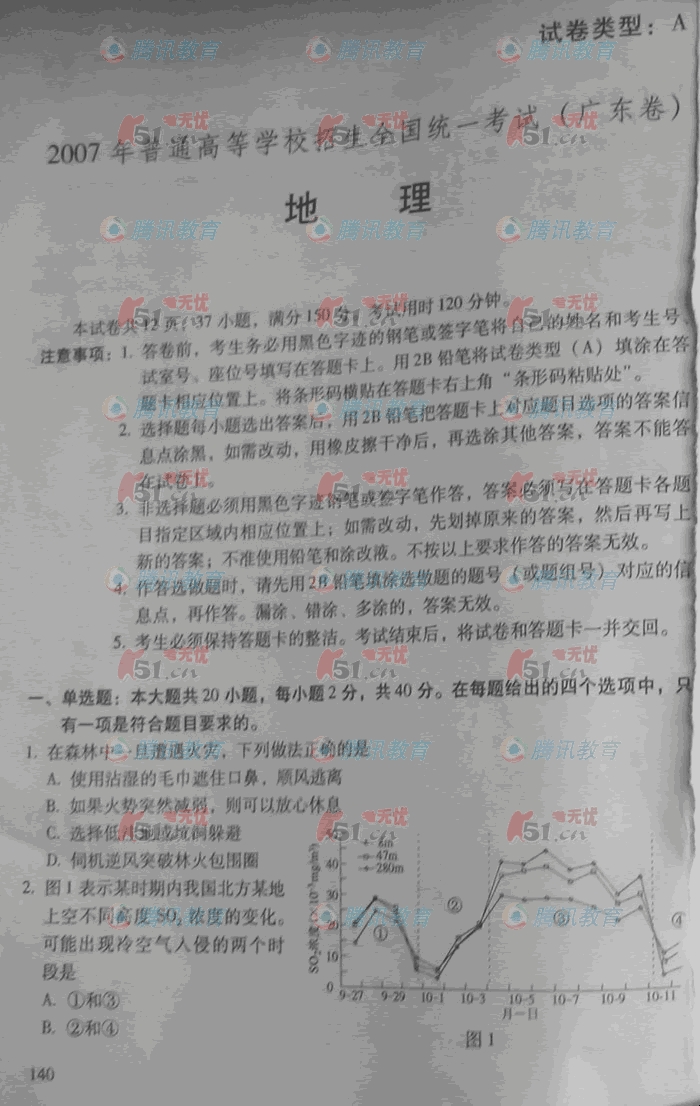 试卷类型：A
2007年普通高等学校招生全国统一考试（广东卷）
地 理
本试卷共12页，37小题，满分150分。考试用时120分钟。
注意事项：1. 答卷前，考生务必用黑色字迹的钢笔或签字笔将自己的姓名和考生号、
试室号、座位号填写在答题卡上。用2B铅笔将试卷类型（A）填涂在答
题卡相应位置上。将条形码横贴在答题卡右上角“条形码粘贴处”。
2. 选择题每小题选出答案后，用2B铅笔把答题卡上对应题目选项的答案信
息点涂黑，如需改动，用橡皮擦干净后，再选涂其他答案，答案不能答
在试卷上。
3. 非选择题必须用黑色字迹钢笔或签字笔作答，答案必须写在答题卡各题
目指定区域内相应位置上；如需改动，先划掉原来的答案，然后再写上
新的答案；不准使用铅笔和涂改液。不按以上要求作答的答案无效。
4. 作答选做题时，请先用2B铅笔填涂选做题的题号（或题组号）对应的信
息点，再作答。漏涂、错涂、多涂的，答案无效。
5. 考生必须保持答题卡的整洁。考试结束后，将试卷和答题卡一并交回。
一、单选题：本大题共20小题，每小题2分，共40分。在每题给出的四个选项中，只
有一项是符合题目要求的。
1. 在森林中一旦遭遇火灾，下列做法正确的是
A. 使用沾湿的毛巾遮住口鼻，顺风逃离
B. 如果火势突然减弱，则可以放心休息
C. 选择低洼地或坑洞躲避
D. 伺机逆风突破林火包围圈
2. 图1表示某时期内我国北方某地
上空不同高度SO₂浓度的变化。
可能出现冷空气入侵的两个时
段是
A. ①和③
B. ②和④
SO₂浓度（×10⁻³mg/m³）
50
40
30
20
10
0
8m
47m
280m
① ② ③ ④
9-27 9-29 10-1 10-3 10-5 10-7 10-9 10-11
月—日
图1
140
腾讯教育
K51.cn
无忧